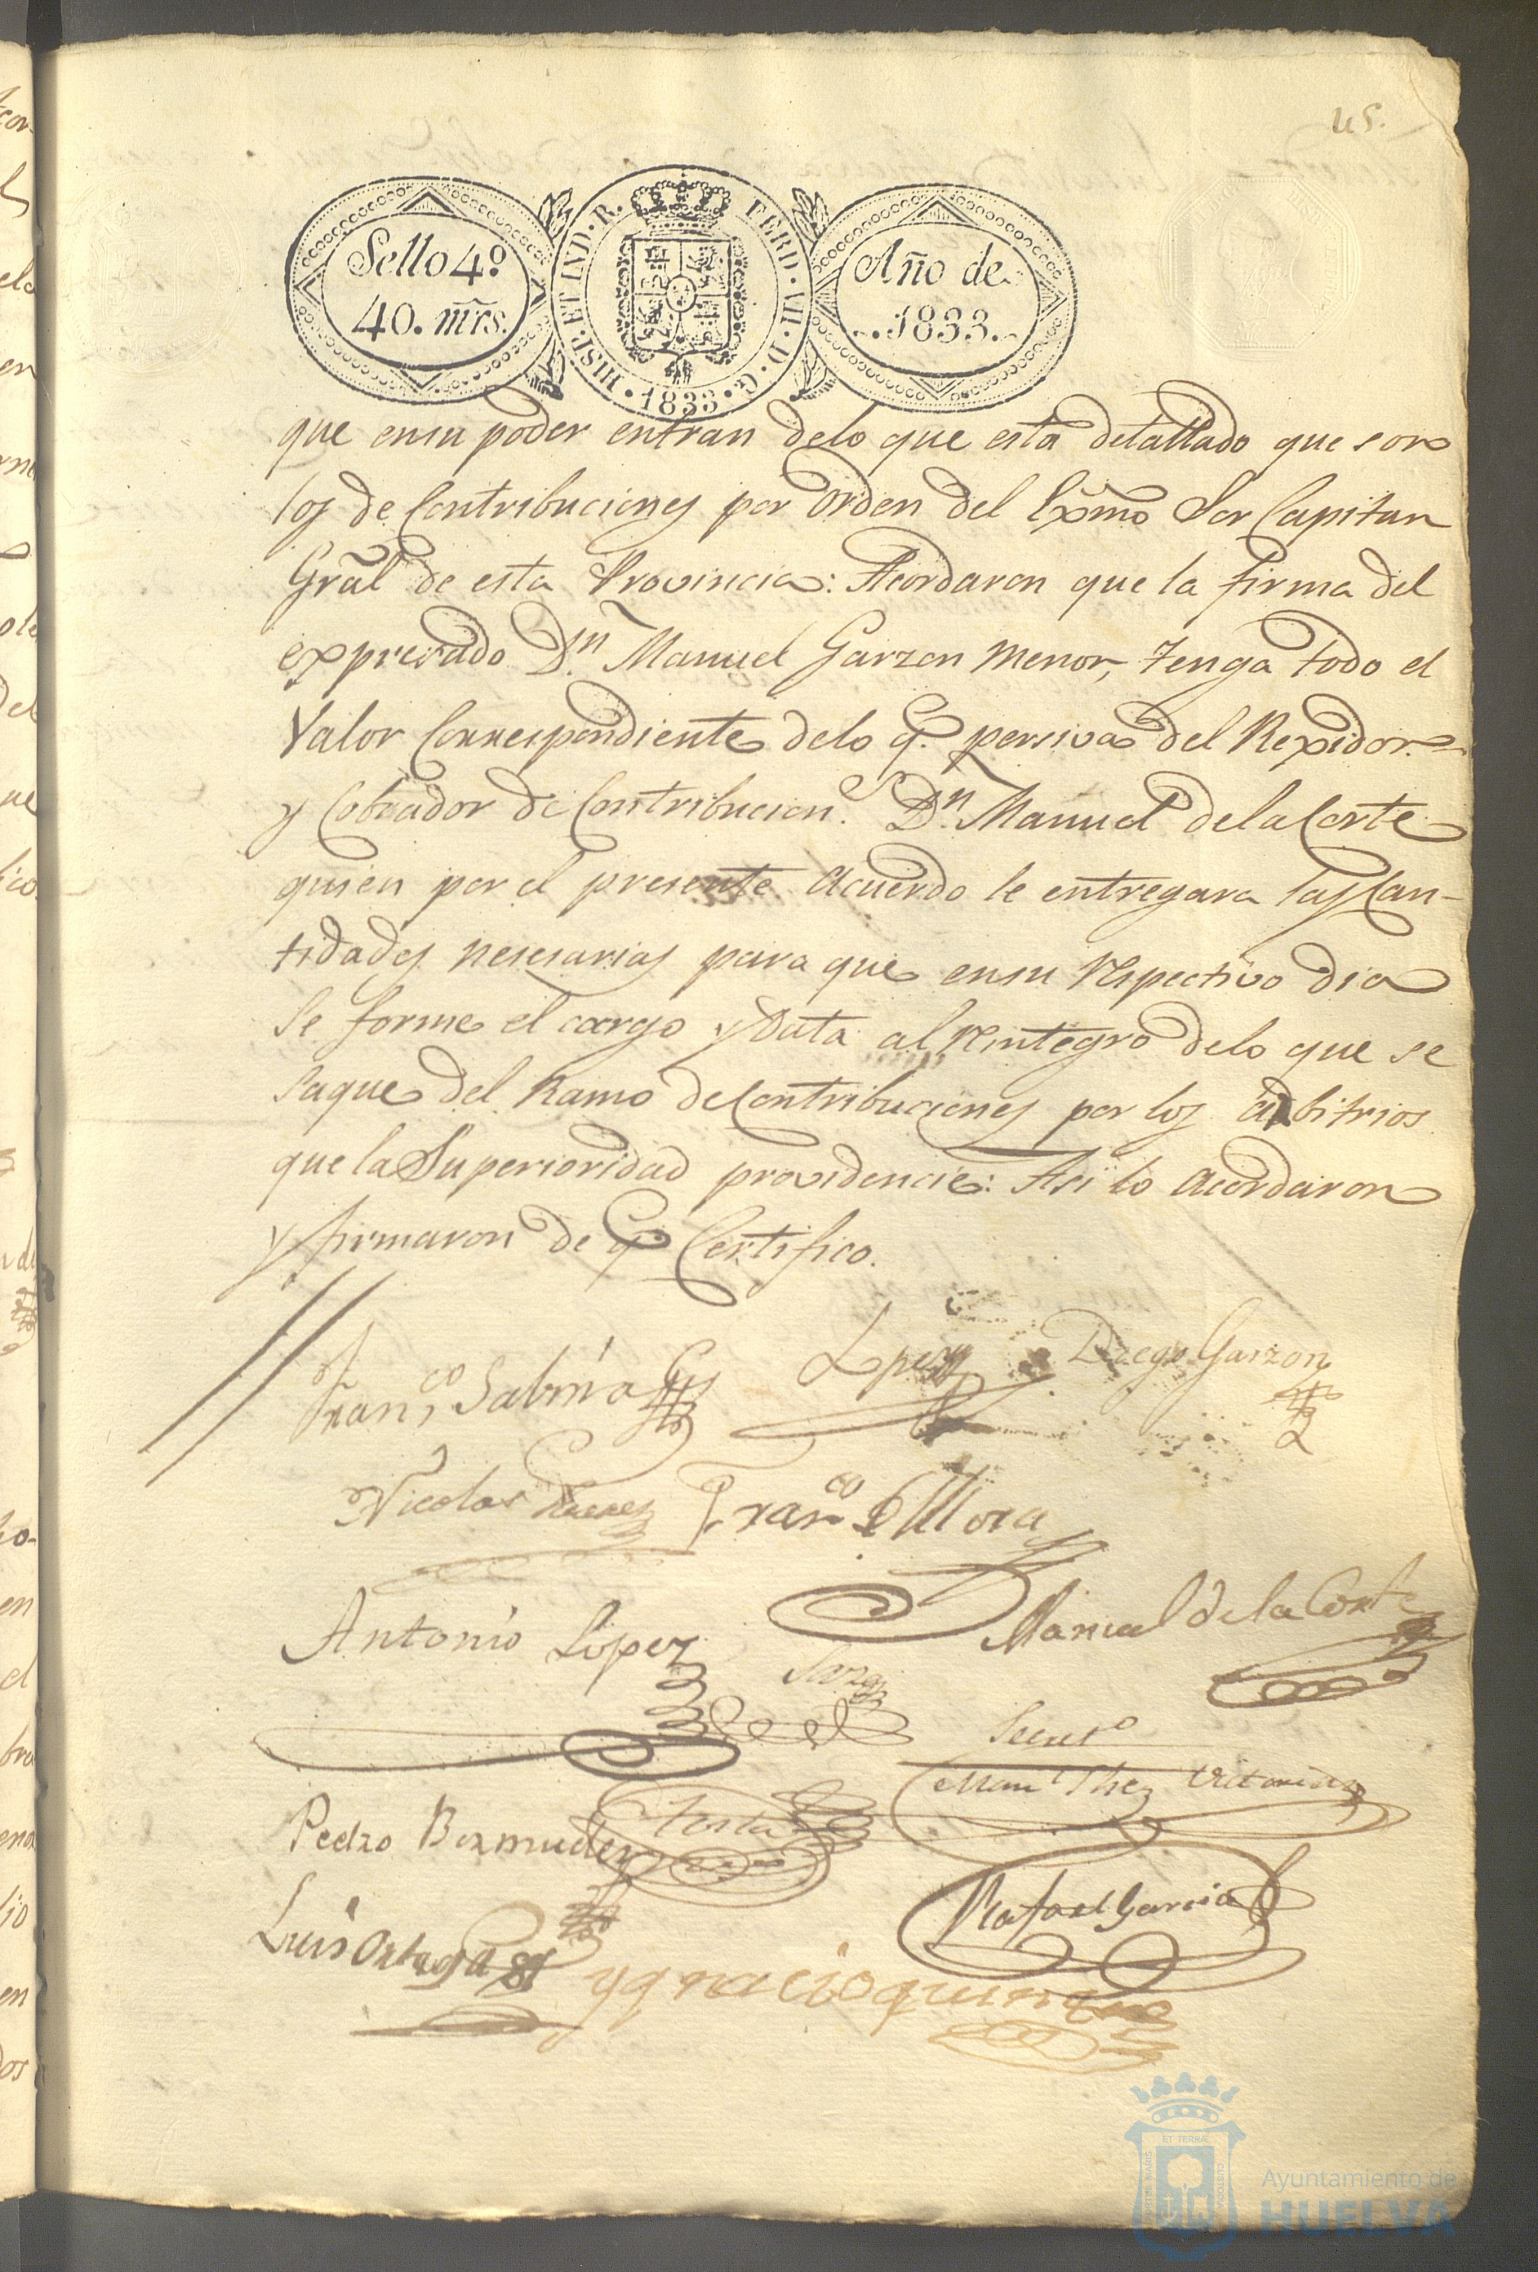 45.
Sello 4º
40. mrs.
HISP. ET IND. R. FERD. VII. D. G. 1833
Año de
1833.
que ensu poder entran delo que esta detallado que son
los de Contribuciones por orden del Exmo Sor Capitan
Gral de esta Provincia: Acordaron que la firma del
expresado Dn. Manuel Garzon menor, tenga todo el
Valor Correspondiente delo q. persiva del Rexidor
y Cobrador de Contribucion.s Dn. Manuel de la Corte
quien por el presente Acuerdo le entregara las Can-
tidades nesesarias para que ensu respectivo dia
se forme el cargo y Data al Reintegro delo que se
saque del Ramo de Contribuciones por los arbitrios
que la Superioridad providencie: Asi lo Acordaron
y firmaron de q. Certifico.
Franco Salvia
Lopez
Diego Garzon
Nicolas
Franco Mora
Antonio Lopez
Manuel de la Corte
Pedro Bermudez
Rafael Garcia
Luis Ortega
ygnacio
Ayuntamiento de
HUELVA